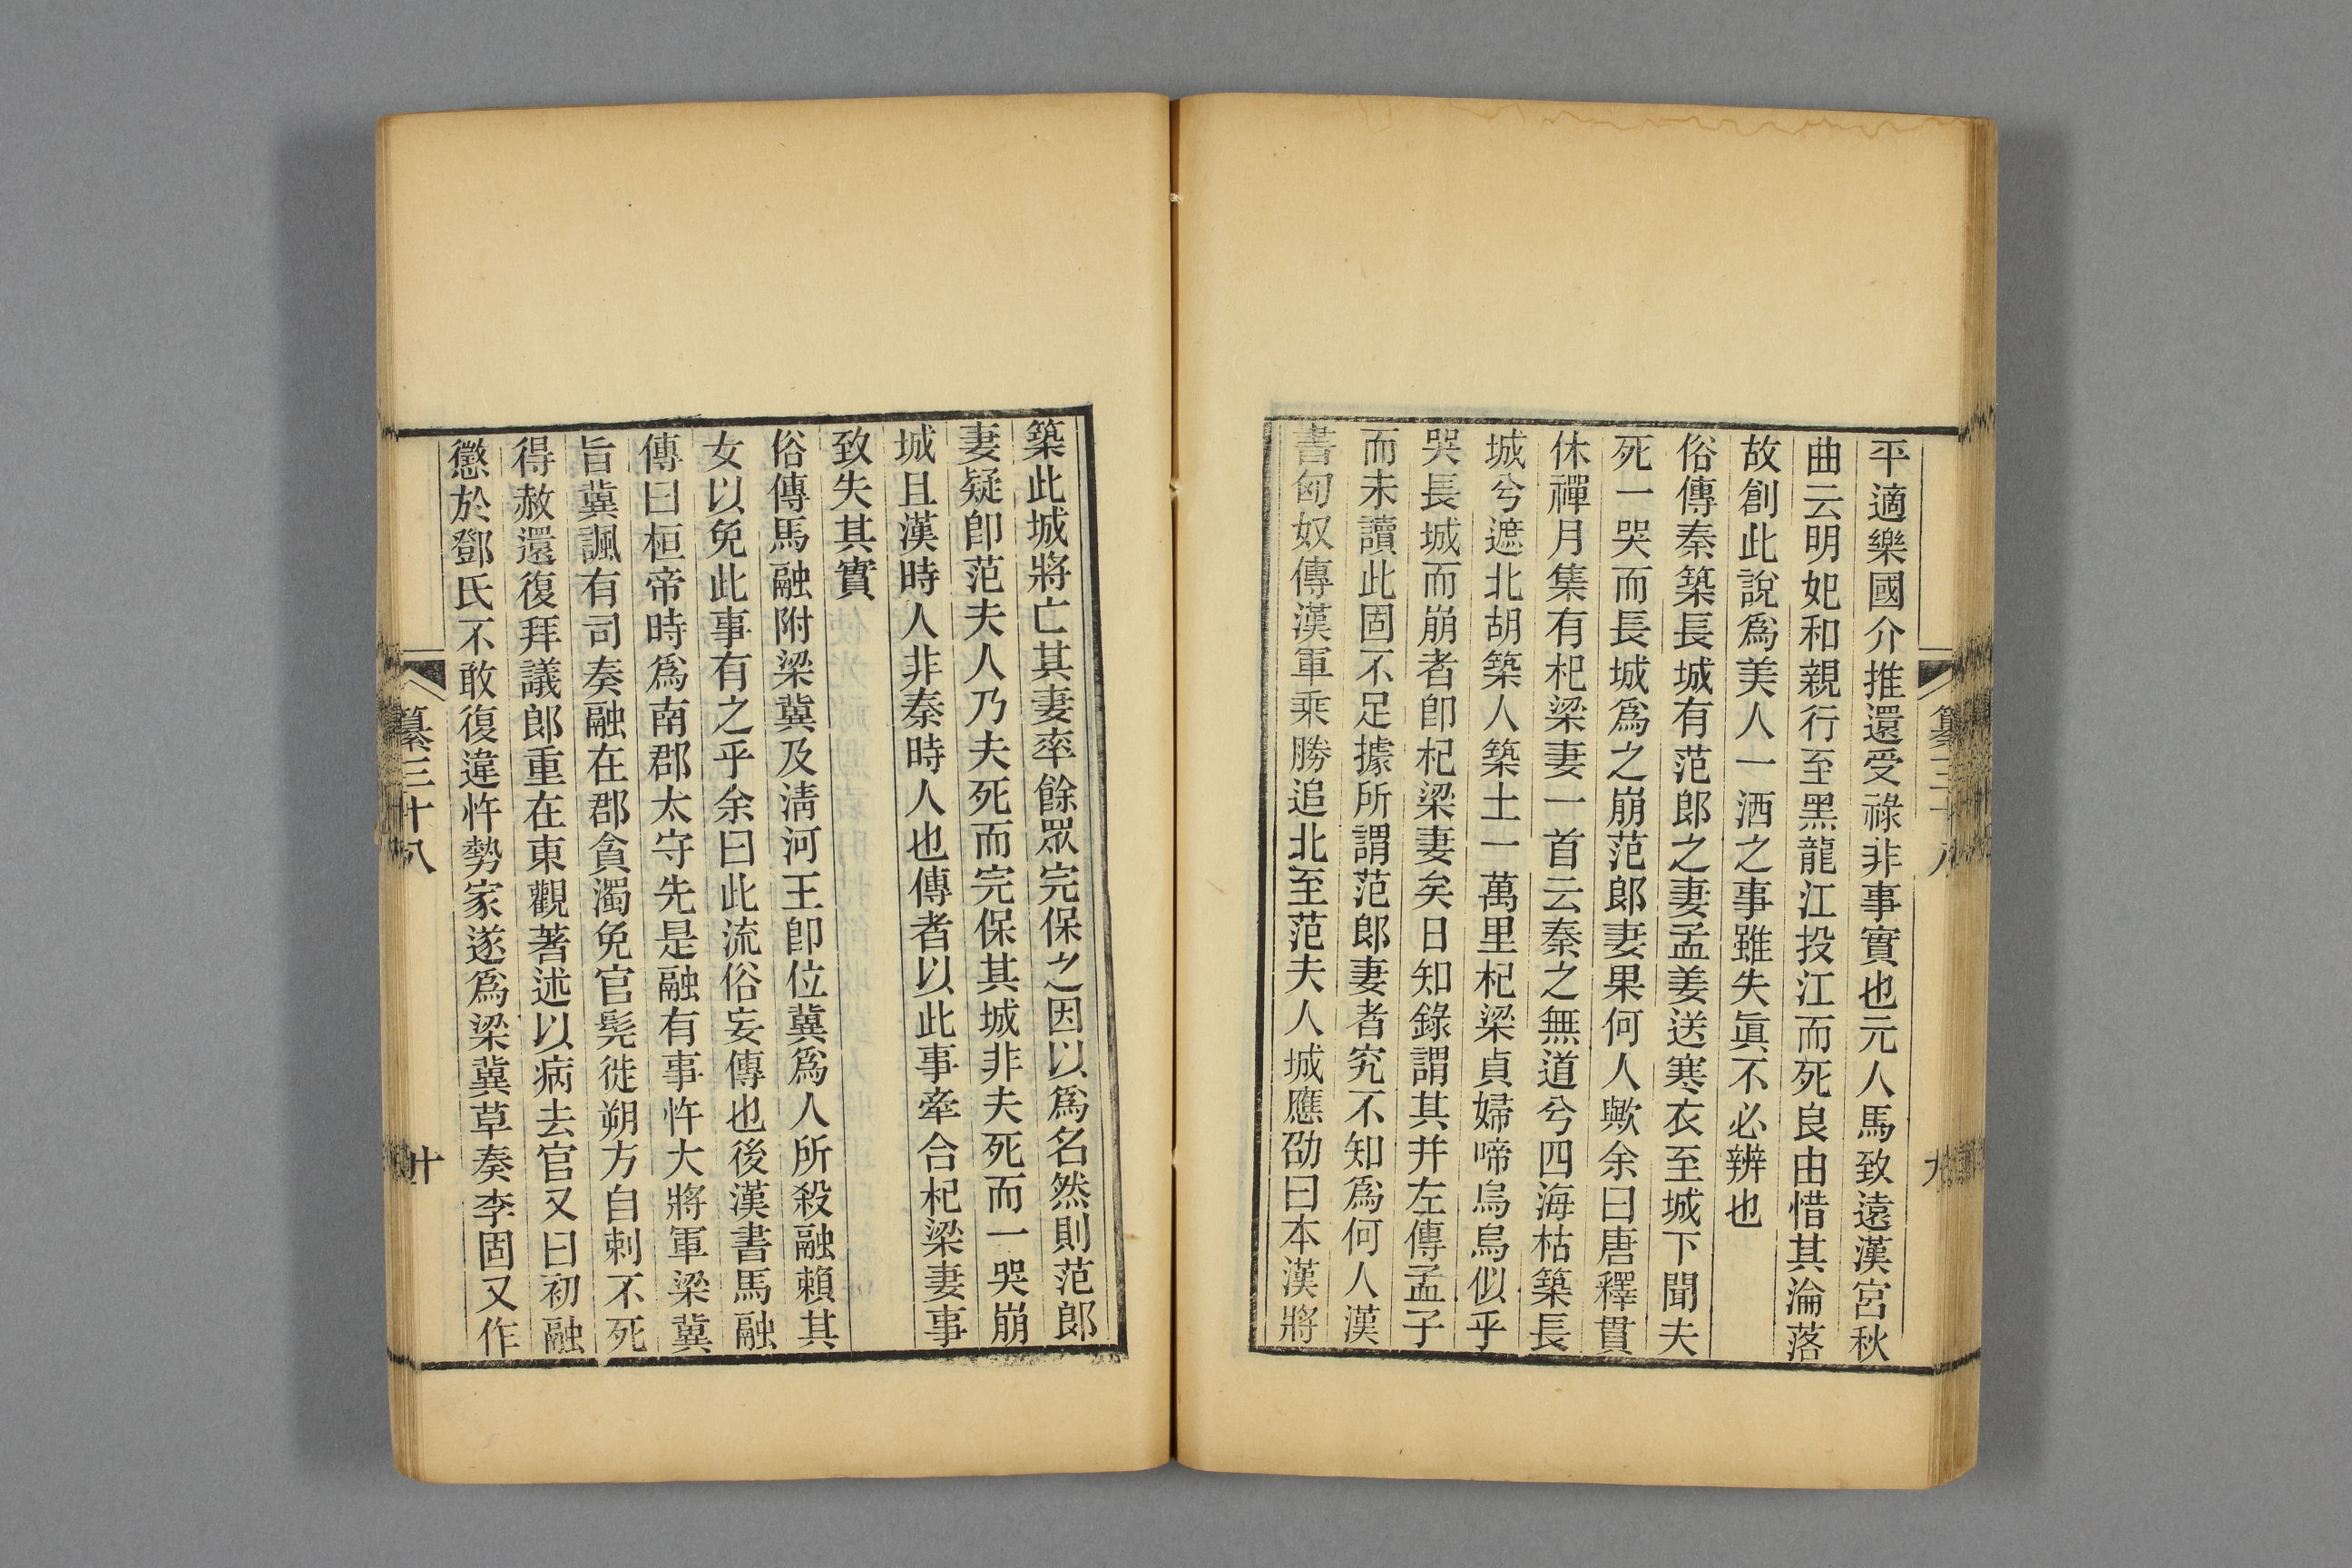 平適樂國介推還受祿非事實也元人馬致遠漢宮秋
曲云明妃和親行至黑龍江投江而死良由惜其淪落
故創此說爲美人一洒之事雖失眞不必辨也
俗傳秦築長城有范郎之妻孟姜送寒衣至城下聞夫
死一哭而長城爲之崩范郎妻果何人歟余曰唐釋貫
休禪月集有杞梁妻一首云秦之無道兮四海枯築長
城兮遮北胡築人築土一萬里杞梁貞婦啼烏烏似乎
哭長城而崩者卽杞梁妻矣日知錄謂其幷左傳孟子
而未讀此固不足據所謂范郎妻者究不知爲何人漢
書匈奴傳漢軍乘勝追北至范夫人城應劭曰本漢將
築此城將亡其妻率餘眾完保之因以爲名然則范郎
妻疑卽范夫人乃夫死而完保其城非夫死而一哭崩
城且漢時人非秦時人也傳者以此事牽合杞梁妻事
致失其實
俗傳馬融附梁冀及淸河王卽位冀爲人所殺融賴其
女以免此事有之乎余曰此流俗妄傳也後漢書馬融
傳曰桓帝時爲南郡太守先是融有事忤大將軍梁冀
旨冀諷有司奏融在郡貪濁免官髡徙朔方自刺不死
得赦還復拜議郎重在東觀著述以病去官又曰初融
懲於鄧氏不敢復違忤勢家遂爲梁冀草奏李固又作
纂三十八
十